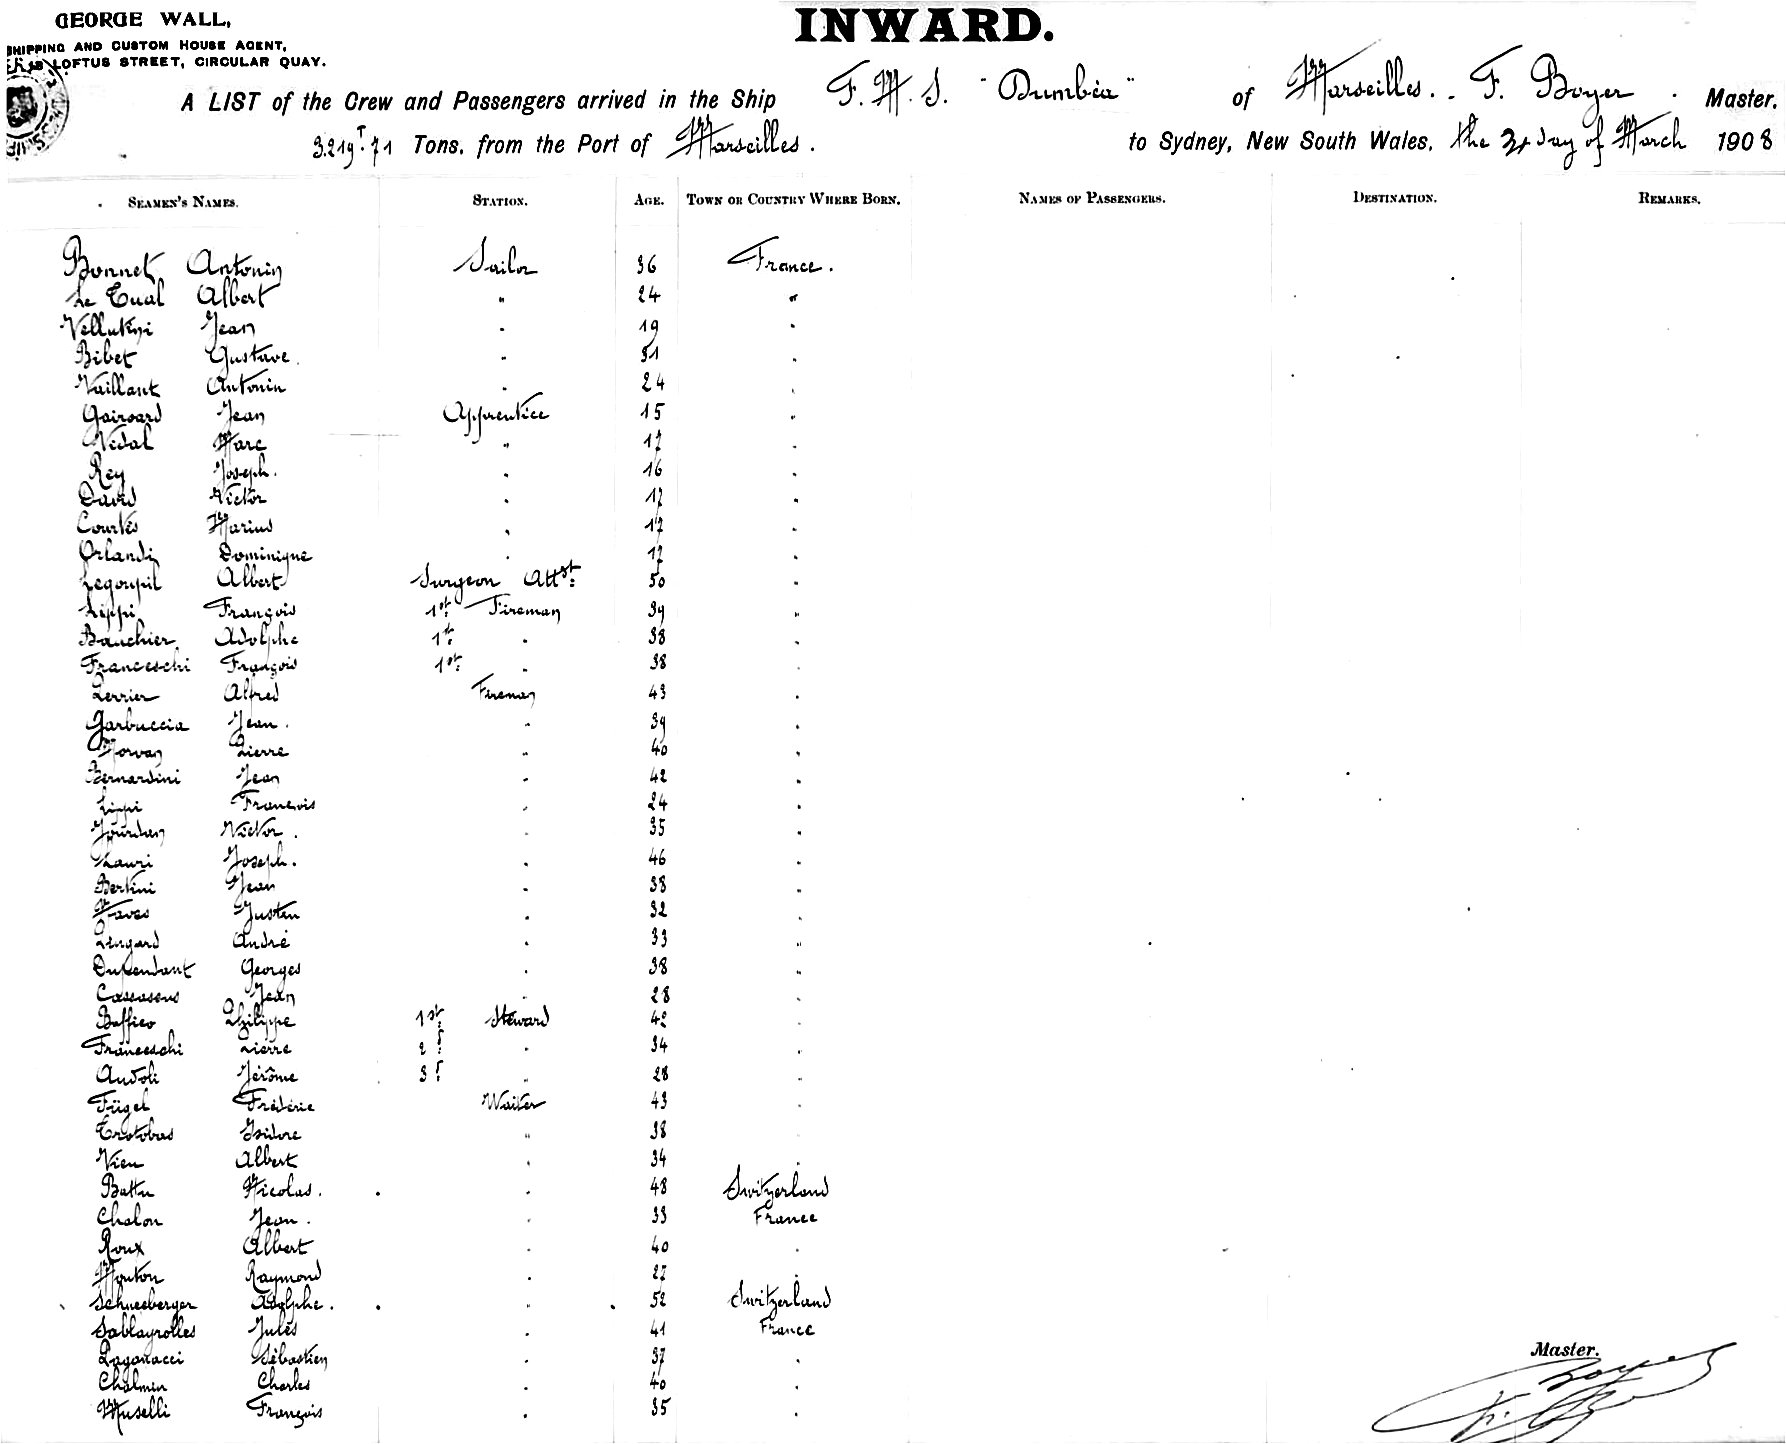 GEORGE WALL,
SHIPPING AND CUSTOM HOUSE AGENT,
LOFTUS STREET, CIRCULAR QUAY.
INWARD.
A LIST of the Crew and Passengers arrived in the Ship F. M. S. "Dumbéa" of Marseilles. F. Boyer. Master,
3.219 T. 71 Tons, from the Port of Marseilles. to Sydney, New South Wales, the 31 day of March 1908
SEAMEN'S NAMES. STATION. AGE. TOWN OR COUNTRY WHERE BORN. NAMES OF PASSENGERS. DESTINATION. REMARKS.
Bonnet Antonin Sailor 36 France.
Le Tual Albert " 24 "
Vellutini Jean " 19 "
Bibet Gustave. " 31 "
Vaillant Antonin " 24 "
Gairoard Jean Apprentice 15 "
Vidal Marc " 17 "
Rey Joseph. " 16 "
David Victor " 17 "
Courtès Marius " 17 "
Orlandi Dominique " 17 "
Legoupil Albert Surgeon Attst: 50 "
Lippi François 1st: Fireman 39 "
Bauchier Adolphe 1st: " 38 "
Franceschi François 1st: " 38 "
Perrier Alfred Fireman 43 "
Garbuccia Jean. " 39 "
Morvan Pierre " 40 "
Bernardini Jean " 42 "
Lippi François " 24 "
Jourdan Victor. " 35 "
Lauri Joseph. " 46 "
Bertini Jean " 38 "
Naves Justin " 32 "
Lingard André " 33 "
Dependant Georges " 38 "
Cassasens Jean " 28 "
Baffico Philippe 1st: Steward 42 "
Franceschi Pierre 2 " 34 "
Andoli Jérôme 3 " 28 "
Fügel Frédéric Waiter 43 "
Trotobas Isidore " 38 "
Vien Albert " 34 "
Battu Nicolas. " 48 Switzerland
Chalon Jean. " 33 France
Roux Albert " 40 "
Mouton Raymond " 27 "
Schneeberger Adolphe. " 52 Switzerland
Sablayrolles Jules " 41 France
Paganacci Sébastien " 37 "
Chalmin Charles " 40 "
Muselli François " 35 "
Master.
F. Boyer